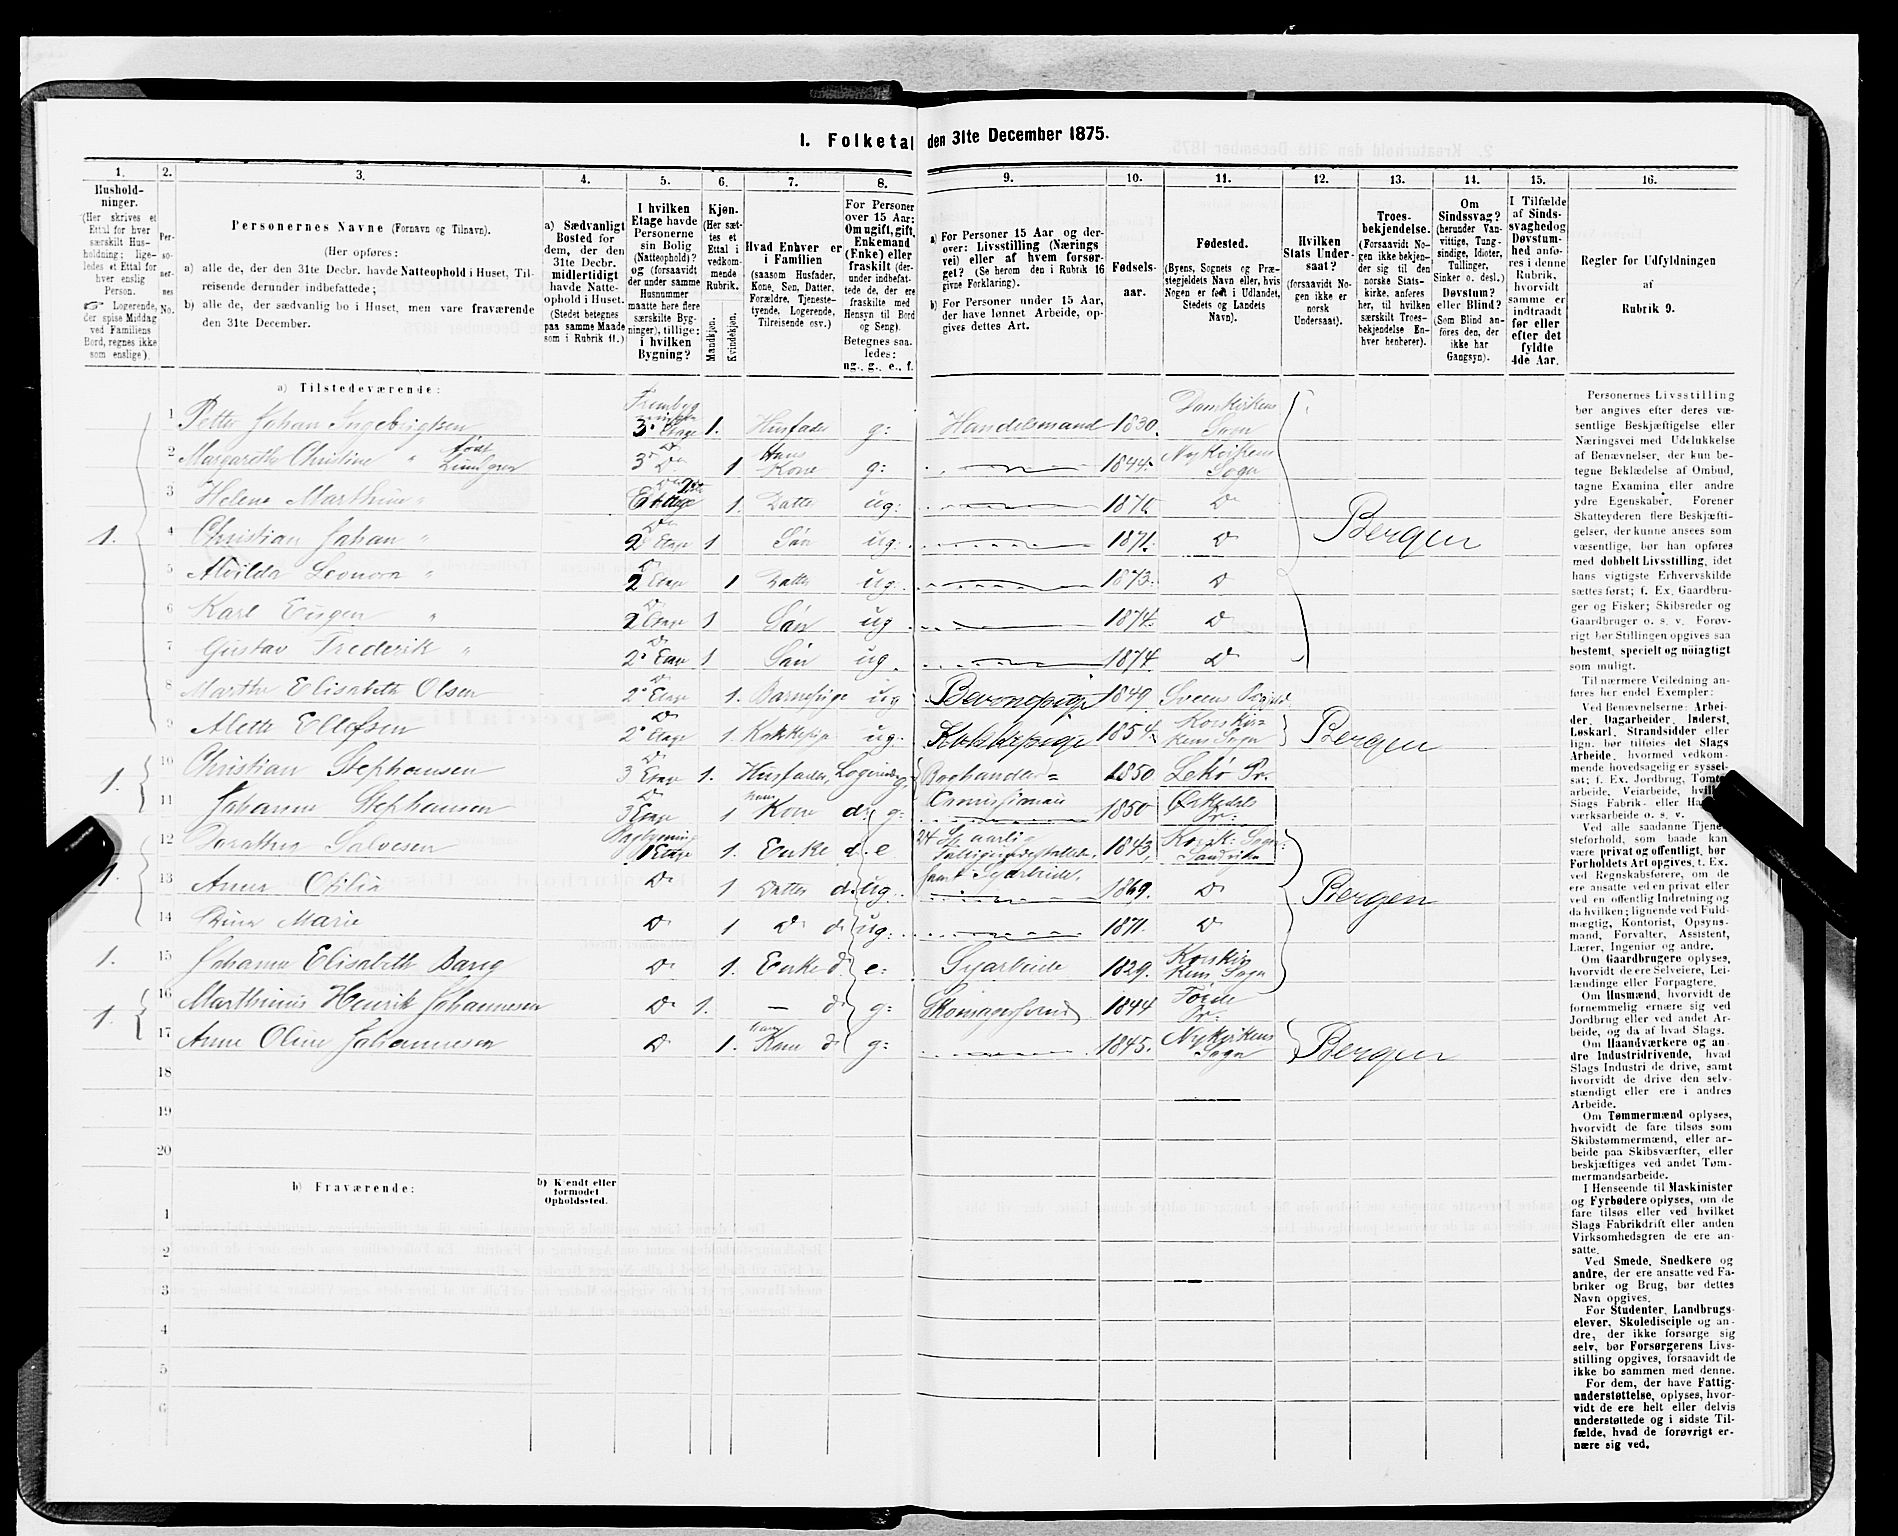 I. Folketal den 31te December 1875.
1. 2. 3. 4. 5. 6. 7. 8. 9. 10. 11. 12. 13. 14. 15. 16.
Hushold-
ninger.
(Her skrives et
Ettal for hver
særskilt Hus-
holdning; lige-
ledes et Ettal for
hver enslig
Person.
☞ Logerende,
der spise Middag
ved Familiens
Bord, regnes ikke
som enslige).
Per-
so-
ner-
nes
No.
Personernes Navne (Fornavn og Tilnavn).
(Her opføres:
a) alle de, der den 31te Decbr. havde Natteophold i Huset, Til-
reisende derunder indbefattede;
b) alle de, der sædvanlig bo i Huset, men vare fraværende
den 31te December.
a) Sædvanligt
Bosted for
dem, der den
31te Decbr.
midlertidigt
havde Natte-
ophold i Huset.
(Stedet betegnes
paa samme Maade
som i Rubrik 11.)
I hvilken
Etage havde
Personerne
sin Bolig
(Natteophold)?
og (forsaavidt
der under samme
Husnummer
maatte høre flere
særskilte Byg-
ninger), tillige:
i hvilken
Bygning?
Kjøn.
(Her sæt-
tes et
Ettal i
vedkom-
mende
Rubrik.
Mandkjøn.
Kvindekjøn.
Hvad Enhver er
i Familien
(saasom Husfader,
Kone, Søn, Datter,
Forældre, Tjeneste-
tyende, Logerende,
Tilreisende osv.)
For Personer
over 15 Aar:
Om ugift, gift,
Enkemand
(Enke) eller
fraskilt (der-
under indbefat-
tede de, der ere
fraskilte med
Hensyn til Bord
og Seng).
Betegnes saa-
ledes:
ug., g., e., f.
a) For Personer 15 Aar og der-
over: Livsstilling (Nærings
vei) eller af hvem forsør-
get? (Se herom den i Rubrik 16
givne Forklaring).
b) For Personer under 15 Aar,
der have lønnet Arbeide, op-
gives dettes Art.
Fødsels-
aar.
Fødested.
(Byens, Sognets og Præ-
stegjeldets Navn eller, hvis
Nogen er født i Udlandet,
Stedets og Landets
Navn).
Hvilken
Stats Under-
saat?
(forsaavidt No-
gen ikke er
norsk
Undersaat).
Troes-
bekjendelse.
(Forsaavidt No-
gen ikke bekjen-
der sig til den
norske Stats-
kirke, anføres
her, til hvilken
særskilt Troes-
bekjendelse En-
hver henhører).
Om
Sindssvag?
(herunder Van-
vittige, Tung-
sindige, Idioter,
Tullinger,
Sinker o. desl.)
Døvstum?
eller Blind?
(Som Blind an-
føres den, der
ikke har
Gangsyn).
I Tilfælde
af Sinds-
svaghed og
Døvstum-
hed anfø-
res i denne
Rubrik,
hvorvidt
samme er
indtraadt
før eller
efter det
fyldte
4de Aar.
Regler for Udfyldningen
af
Rubrik 9.
a) Tilstedeværende:
1 Petter Johan Ingebrigtsen 3 Etage 1. Husfader g: Handelsmand 1830. Domkirkens Sogn
2 Margarethe Christine " født Lundgren 3 Do 1 Hans Kone g: 1844. Nykirkens Sogn
3 Helene Marthine " Etage 1. Datter ug: 1870 Do
1. 4 Christian Johan " Do 2 Etage 1 Søn ug. 1871. Do Bergen
5 Alvilda Leonora " Do 2 Etage 1 Datter ug 1873. Do
6 Karl Eugen " Do 2 Etage 1 Søn ug. 1874. Do
7 Gustav Frederik " Do 2 Etage 1 Søn ug. 1874. Do
8 Martha Elisabeth Olsen Do 2 Etage 1. Barnepige ug Barnepige 1849.
9 Aletta Ellefsen Do 2 Etage 1 Kokkepige ug. Kokkepige 1854. Korskirkens Sogn Bergen
1. 10 Christian Stephansen Do 3 Etage 1. Husfader, Logerende g: Boghandler= 1850 Lekø Pr.
11 Johanne Stephansen Do 3 Etage 1 hans Kone do g: 1850 Ørkedals Pr:
12 Dorothea Salvesen Bagbygning 1 Etage 1. Enke do e 1843, Korsk: Sogn: Sandviken
1. 13 Anna Otilia Do 1 Datter do ug. samt Syarbeide. 1869. Do Bergen
14 Marie Do 1 Do do ug: 1871. Do
1. 15 Johanne Elisabeth Do 1. Enke do e: Syarbeide 1829. Korskirkens Sogn
1. 16 Marthinus Henrik Johannesen Do 1. — do g: Skomagersvend 1844 Førde Pr:
17 Anne Oline Johannesen Do 1. hans Kone do g: 1845. Nykirkens Sogn Bergen
18
19
20
b) Fraværende:
b) Kjendt eller
formodet
Opholdssted.
1
2
3
4
5
6
Personernes Livsstilling
bør angives efter deres væ-
sentlige Beskjæftigelse eller
Næringsvei med Udelukkelse
af Benævnelser, der kun be-
tegne Beklædelse af Ombud,
tagne Examina eller andre
ydre Egenskaber. Forener
Skatteyderen flere Beskjæfti-
gelser, der kunne ansees som
væsentlige, bør han opføres
med dobbelt Livsstilling, idet
hans vigtigste Erhvervskilde
sættes først; f. Ex. Gaardbru-
ger og Fisker; Skibsreder og
Gaardbruger o. s. v. Forøv-
rigt bør Stillingen opgives saa
bestemt, specielt og nøiagtigt
som muligt.
Til nærmere Veiledning an-
føres her endel Exempler:
Ved Benævnelserne: Arbei-
der, Dagarbeider, Inderst,
Løskarl, Strandsidder eller
lign. bør tilføies det Slags
Arbeide, hvormed vedkom-
mende hovedsagelig er syssel-
sat; f. Ex. Jordbrug, Tomte-
arbeide, Veiarbeide, hvilket
Slags Fabrik- eller
værksarbeide o. s. v.
Ved alle saadanne Tjene-
steforhold, som baade kan
være privat og offentligt, bør
Forholdets Art opgives, f. Ex.
ved Regnskabsførere, om de
ere ansatte ved en privat eller
ved en offentlig Indretning og
da hvilken; lignende ved Fuld-
mægtig, Kontorist, Opsyns-
mand, Forvalter, Assistent,
Lærer, Ingeniør og andre.
Om Gaardbrugere oplyses,
hvorvidt de ere Selveiere, Lei-
lændinge eller Forpagtere.
Om Husmænd, hvorvidt de
fornemmelig ernære sig ved
Jordbrug eller ved andet Ar-
beide, og da af hvad Slags.
Om Haandværkere og an-
dre Industridrivende, hvad
Slags Industri de drive, samt
hvorvidt de drive den selv-
stændigt eller ere i andres
Arbeide.
Om Tømmermænd oplyses,
hvorvidt de fare tilsøs som
Skibstømmermænd, eller ar-
beide paa Skibsværfter, eller
beskjæftiges ved andet Tøm-
mermandsarbeide.
I Henseende til Maskinister
og Fyrbødere oplyses, om de
fare tilsøs eller ved hvilket
Slags Fabrikdrift eller anden
Virksomhedsgren de ere an-
satte.
Ved Smede, Snedkere og
andre, der ere ansatte ved Fa-
briker og Brug, bør dettes
Navn opgives.
For Studenter, Landbrugs-
elever, Skoledisciple og an-
dre, der ikke forsørge sig
selv, bør Forsørgerens Livs-
stilling opgives, forsaavidt de
ikke bo sammen med denne.
For dem, der have Fattig-
understøttelse, oplyses, hvor-
vidt de ere helt eller delvis
understøttede og i sidste Til-
fælde, hvad de forøvrigt er-
nære sig ved.